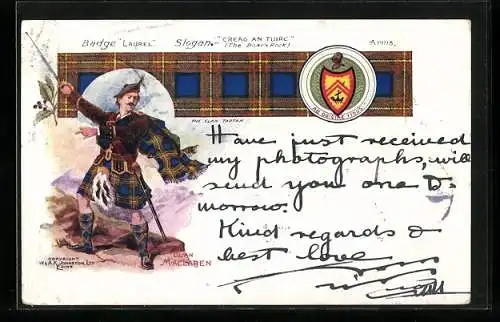 Badge "LAUREL" Slogan. "CREAG AN TUIRC" ARMS.
(The Boar's Rock)
THE CLAN TARTAN
Have just received
my photographs, will
send you one to-
morrow.
Kind regards &
best love
COPYRIGHT
W & A.K. JOHNSTON LTD
EDINR
CLAN
MACLAREN